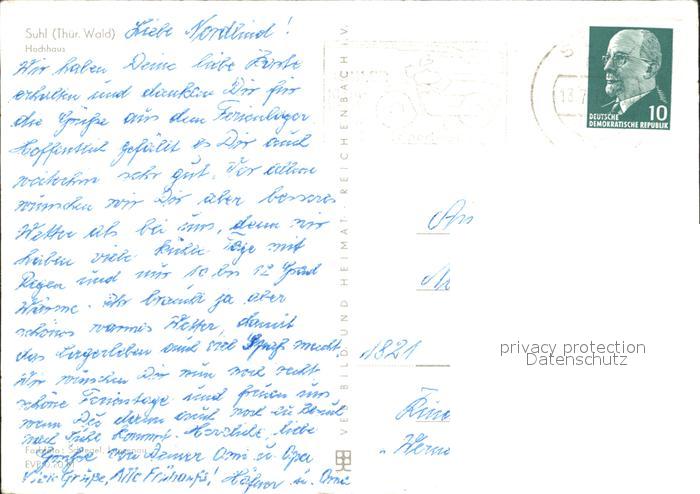 Suhl (Thür. Wald)
Hochhaus
Liebe
Wir haben Deine liebe Karte
erhalten und danken Dir für
die Grüße aus dem Ferienlager
Hoffentlich gefällt es Dir auch
weiterhin sehr gut. Vor allem
wünschen wir Dir aber besseres
Wetter als bei uns, denn wir
haben viele kühle Tage mit
Regen und nur 10 bis 12 Grad
Wärme. Ihr braucht ja aber
schönes warmes Wetter, damit
das Lagerleben auch viel Spaß macht.
Wir wünschen Dir nun noch recht
schöne Ferientage und freuen uns
wenn Du dann auch noch zu Besuch
nach Suhl kommst. Herzliche, liebe
Grüße von Deiner Omi u. Opa
Viele Grüße, u. Omi
VEB BILD UND HEIMAT · REICHENBACH i. V.
13.7
DEUTSCHE
DEMOKRATISCHE REPUBLIK
10
An
1821
privacy protection
Datenschutz